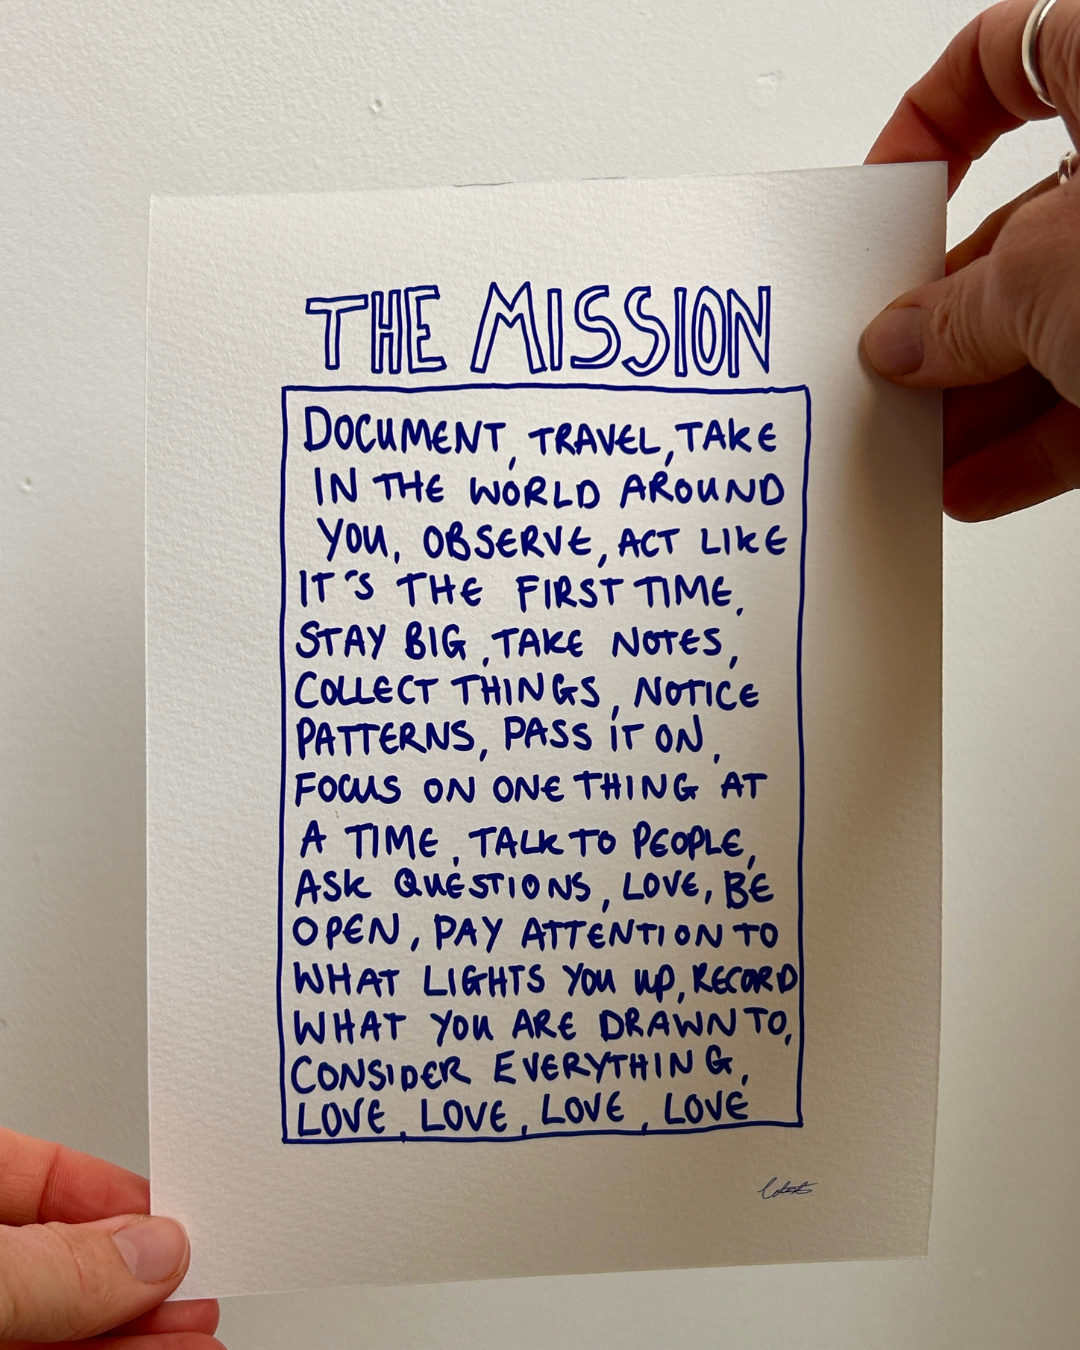 THE MISSION
DOCUMENT, TRAVEL, TAKE
IN THE WORLD AROUND
YOU, OBSERVE, ACT LIKE
IT'S THE FIRST TIME,
STAY BIG, TAKE NOTES,
COLLECT THINGS, NOTICE
PATTERNS, PASS IT ON,
FOCUS ON ONE THING AT
A TIME, TALK TO PEOPLE,
ASK QUESTIONS, LOVE, BE
OPEN, PAY ATTENTION TO
WHAT LIGHTS YOU UP, RECORD
WHAT YOU ARE DRAWN TO,
CONSIDER EVERYTHING,
LOVE, LOVE, LOVE, LOVE